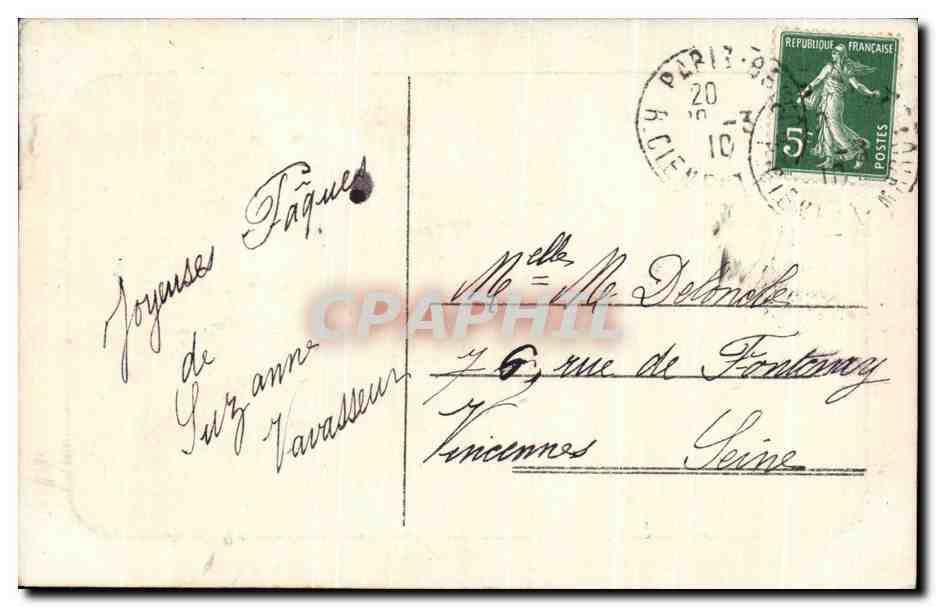 Joyeuses Pâques
de
Suzanne
Vavasseur
Melle M Deloncle
76, rue de Fontenay
Vincennes Seine
REPUBLIQUE FRANÇAISE
5c
POSTES
PARIS
20
-3
10
CPAPHIL